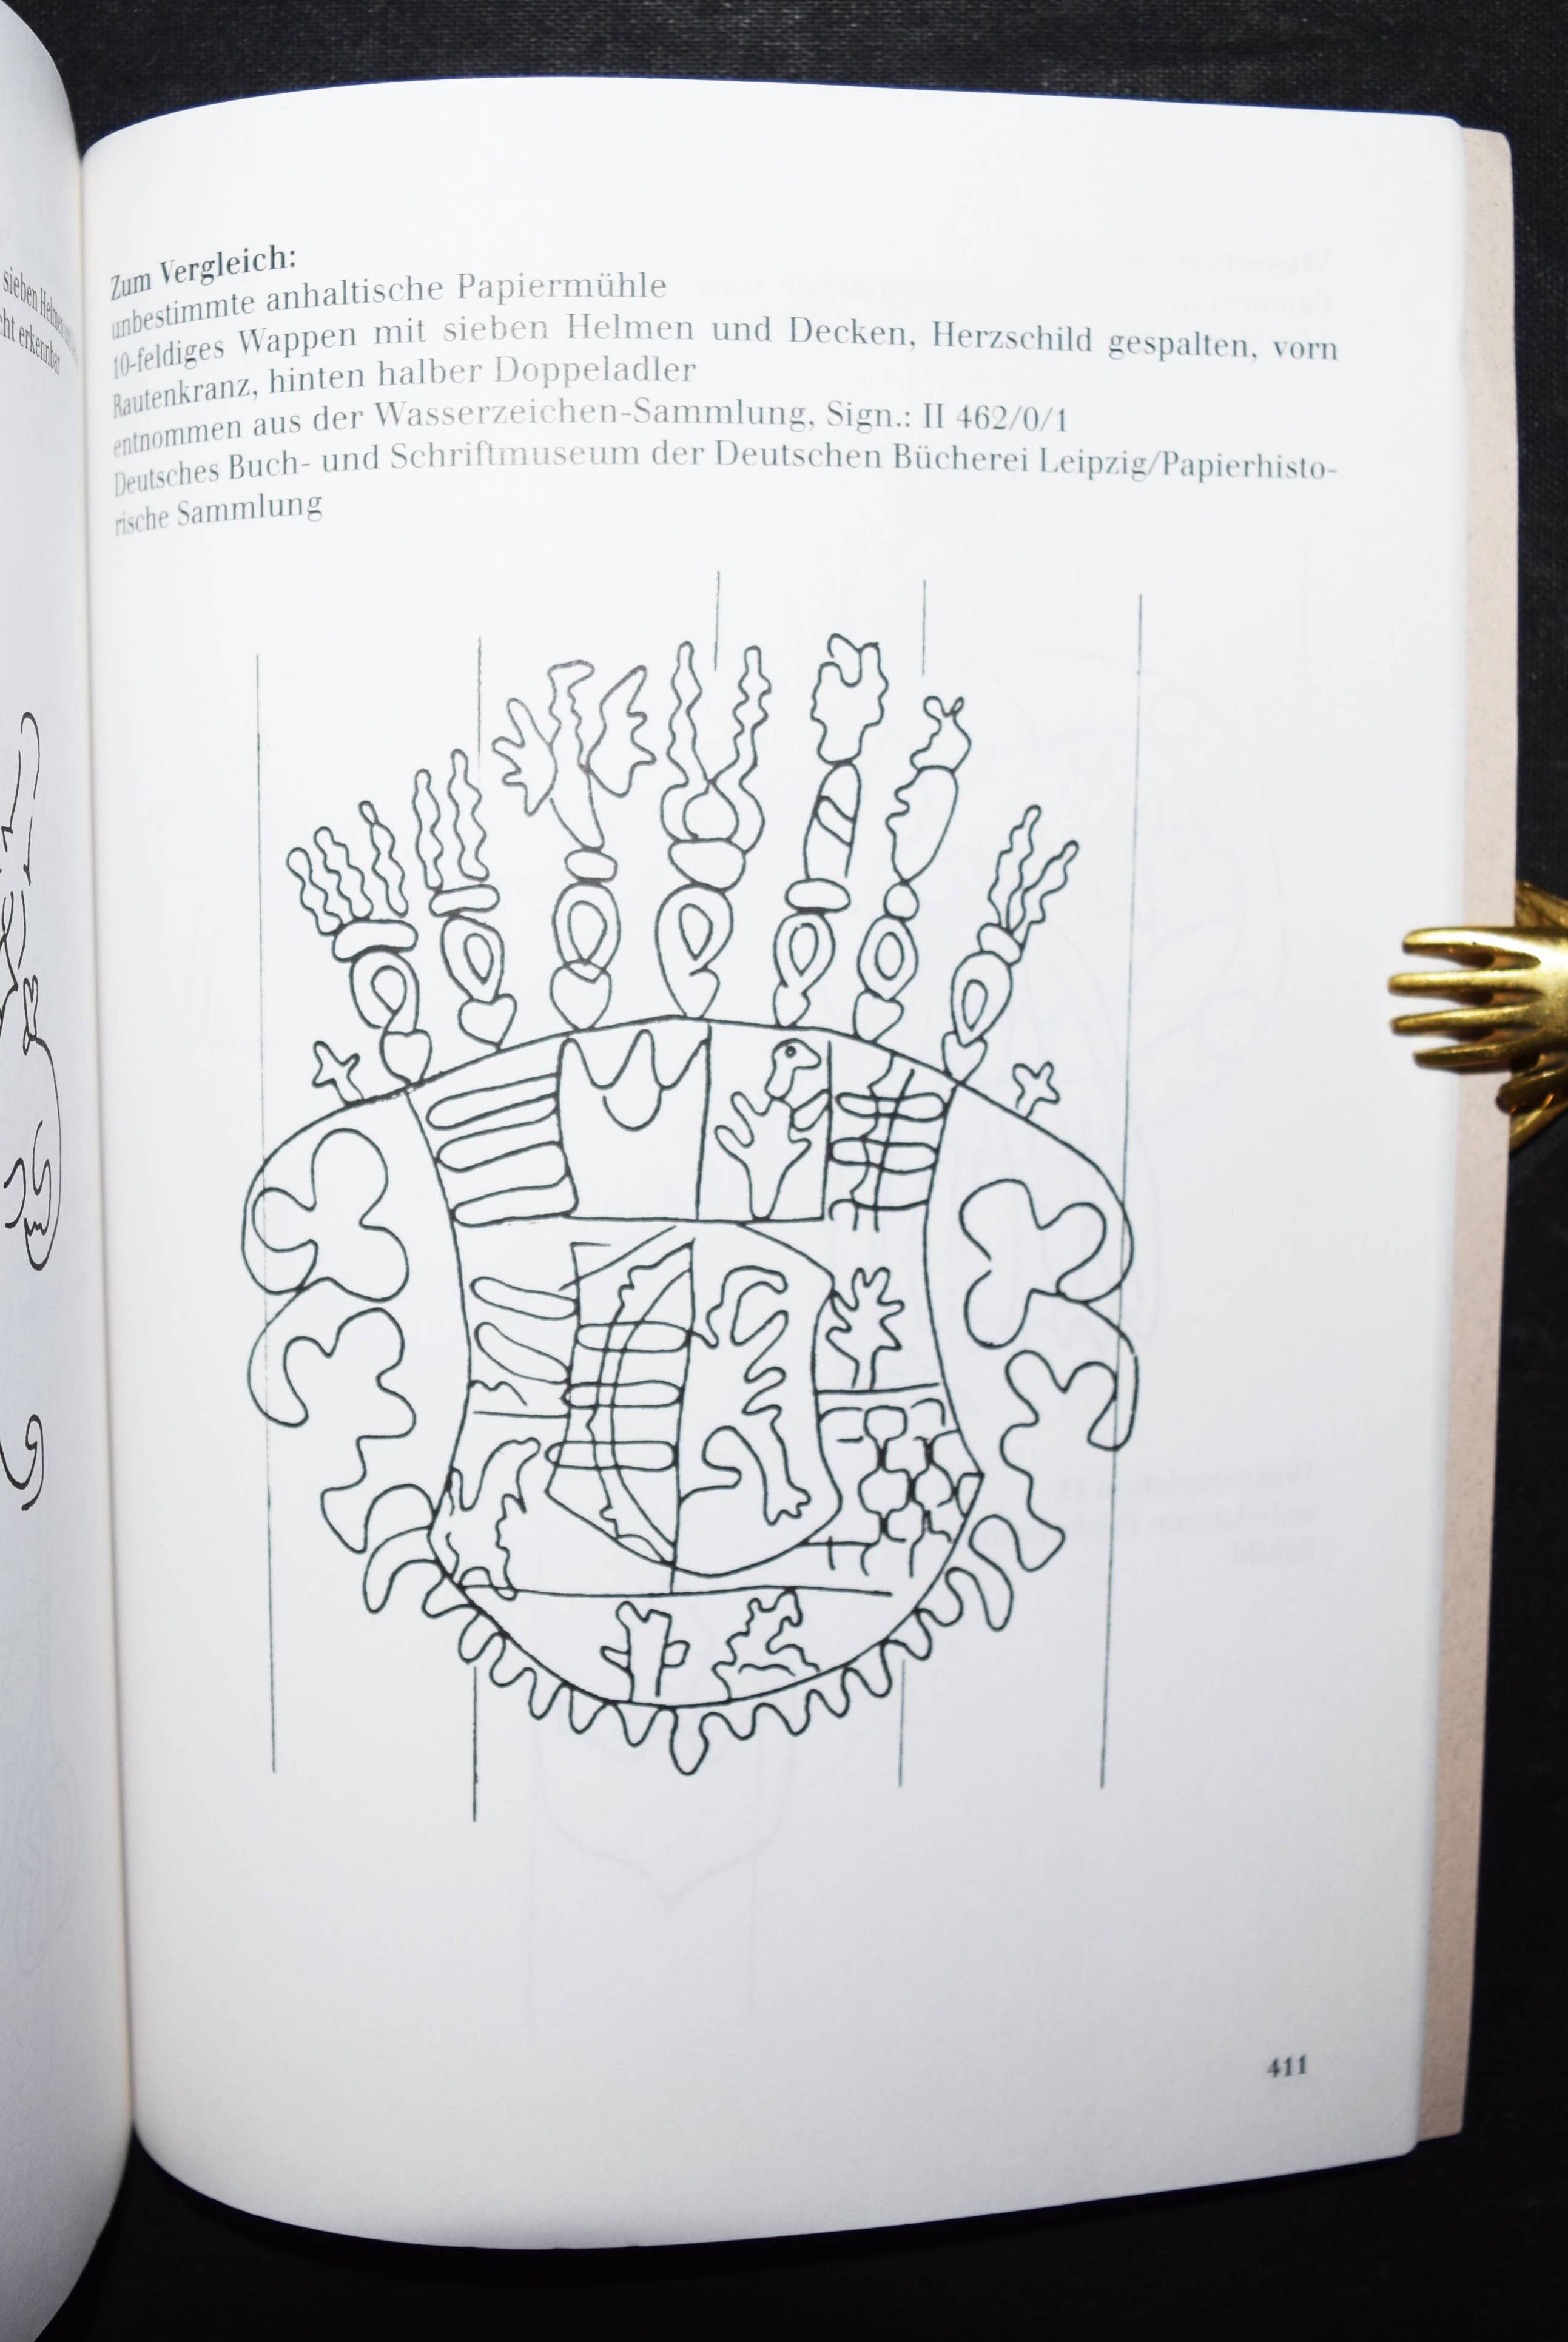 sieben Helmen
cht erkennbar
Zum Vergleich:
unbestimmte anhaltische Papiermühle
10-feldiges Wappen mit sieben Helmen und Decken, Herzschild gespalten, vorn
Rautenkranz, hinten halber Doppeladler
entnommen aus der Wasserzeichen-Sammlung, Sign.: II 462/0/1
Deutsches Buch- und Schriftmuseum der Deutschen Bücherei Leipzig/Papierhisto-
rische Sammlung
411